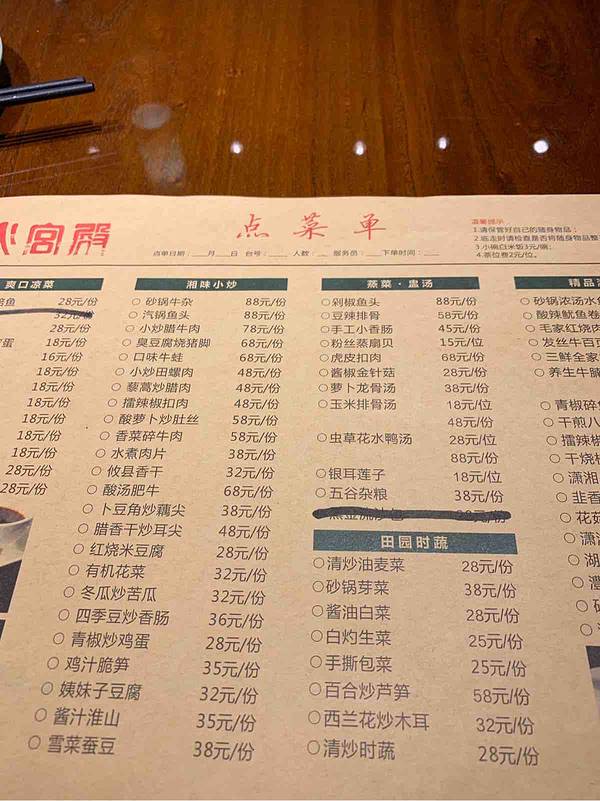 火宫殿
点菜单
点单日期：___月___日 台号：___人数：__ 服务员：___下单时间：___
温馨提示
1.请保管好自己的随身物品；
2.临走时请检查是否将随身物品整
3.小碗白米饭3元/碗；
4.茶位费2元/位。
爽口凉菜
鱼 28元/份
32元/份
28元/份
蛋 18元/份
16元/份
18元/份
18元/份
18元/份
18元/份
18元/份
28元/份
28元/份
湘味小炒
砂锅牛杂 88元/份
汽锅鱼头 88元/份
小炒腊牛肉 78元/份
臭豆腐烧猪脚 68元/份
口味牛蛙 68元/份
小炒田螺肉 48元/份
藜蒿炒腊肉 48元/份
擂辣椒扣肉 48元/份
酸萝卜炒肚丝 58元/份
香菜碎牛肉 58元/份
水煮肉片 38元/份
攸县香干 32元/份
酸汤肥牛 68元/份
卜豆角炒藕尖 38元/份
腊香干炒耳尖 48元/份
红烧米豆腐 28元/份
有机花菜 32元/份
冬瓜炒苦瓜 32元/份
四季豆炒香肠 36元/份
青椒炒鸡蛋 28元/份
鸡汁脆笋 35元/份
姨妹子豆腐 32元/份
酱汁淮山 35元/份
雪菜蚕豆 38元/份
蒸菜·盅汤
剁椒鱼头 88元/份
豆辣排骨 58元/份
手工小香肠 45元/份
粉丝蒸扇贝 15元/位
虎皮扣肉 68元/份
酱椒金针菇 28元/份
萝卜龙骨汤 38元/份
玉米排骨汤 18元/位
48元/份
虫草花水鸭汤 28元/位
88元/份
银耳莲子 18元/位
五谷杂粮 38元/份
田园时蔬
清炒油麦菜 28元/份
砂锅芽菜 38元/份
酱油白菜 28元/份
白灼生菜 25元/份
手撕包菜 25元/份
百合炒芦笋 58元/份
西兰花炒木耳 32元/份
清炒时蔬 28元/份
精品
砂锅浓汤水鱼
酸辣鱿鱼卷
毛家红烧肉
发丝牛百
三鲜全家
养生牛腩
青椒碎牛
干煎八
擂辣椒
干烧
潇湘
韭香
花菇
潇
湖